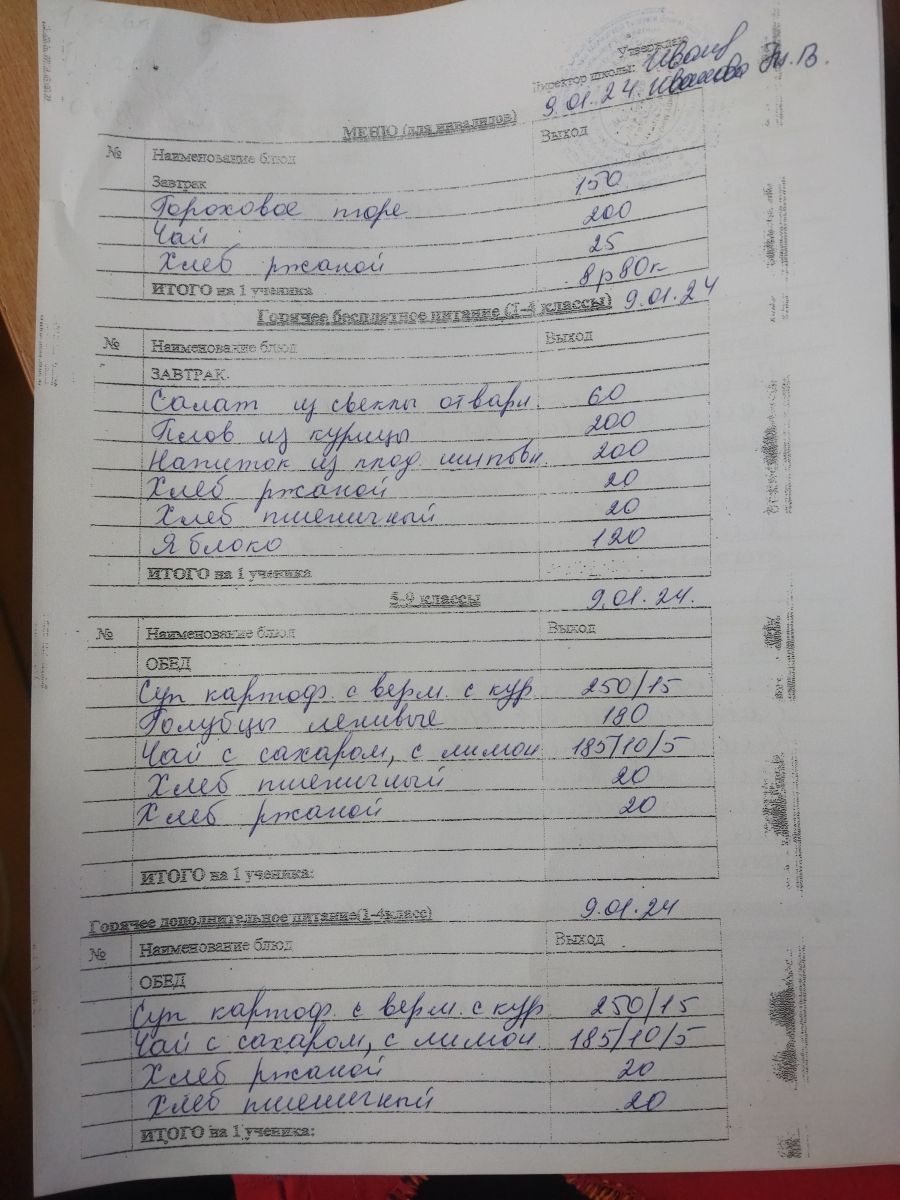 Утверждаю
Директор школы: Иванов
9.01.24. Иванова М.В.
МЕНЮ (для инвалидов)
№ Наименование блюд Выход
Завтрак
Гороховое пюре 150
Чай 200
Хлеб ржаной 25
ИТОГО на 1 ученика 8р80к
Горячее бесплатное питание (1-4 классы) 9.01.24
№ Наименование блюд Выход
ЗАВТРАК.
Салат из свеклы отварн. 60
Плов из курицы 200
Напиток из плод. шиповн. 200
Хлеб ржаной 20
Хлеб пшеничный 20
Яблоко 120
ИТОГО на 1 ученика
5-9 классы 9.01.24.
№ Наименование блюд Выход
ОБЕД
Суп картоф. с верм. с кур 250/15
Голубцы ленивые 180
Чай с сахаром, с лимон 185/10/5
Хлеб пшеничный 20
Хлеб ржаной 20
ИТОГО на 1 ученика:
Горячее дополнительное питание(1-4класс) 9.01.24
№ Наименование блюд Выход
ОБЕД
Суп картоф. с верм. с кур 250/15
Чай с сахаром, с лимон. 185/10/5
Хлеб ржаной 20
Хлеб пшеничный 20
ИТОГО на 1 ученика: